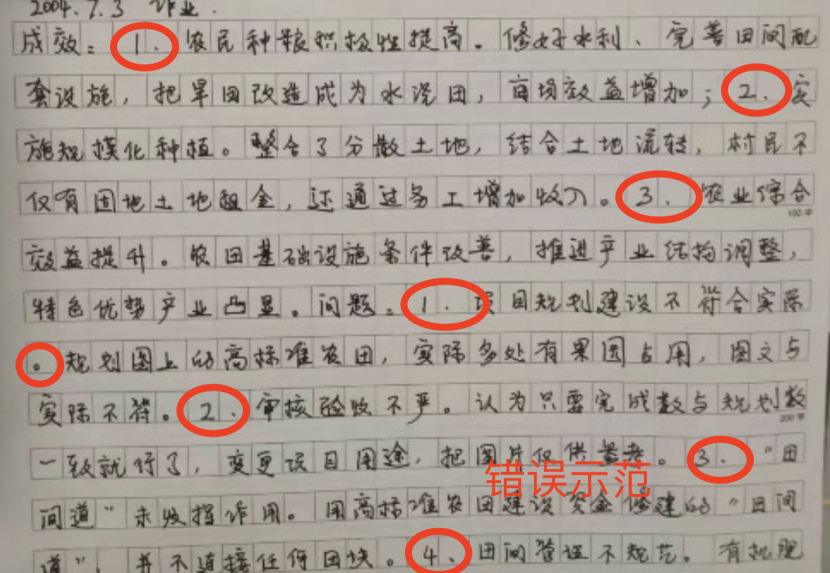 2004.7.3 作业.
成效：1. 农民种粮积极性提高。修好水利、完善田间配
套设施，把旱田改造成为水浇田，亩场效益增加；2. 实
施规模化种植。整合了分散土地，结合土地流转，村民不
仅有固地土地租金，还通过务工增加收入。3. 农业综合
100字
效益提升。农田基础设施条件改善，推进产业结构调整，
特色优势产业凸显。问题：1. 项目规划建设不符合实际
。规划图上的高标准农田，实际多处有果园占用，图文与
实际不符。2. 审核验收不严。认为只要完成数与规划数
200字
一致就行了，变更该目用途，把图片仅供参考。3. “田
错误示范
间道”未发挥作用。用高标准农田建设资金修建的“田间
道”，并不连接任何田块。4、田间管理不规范。有机肥